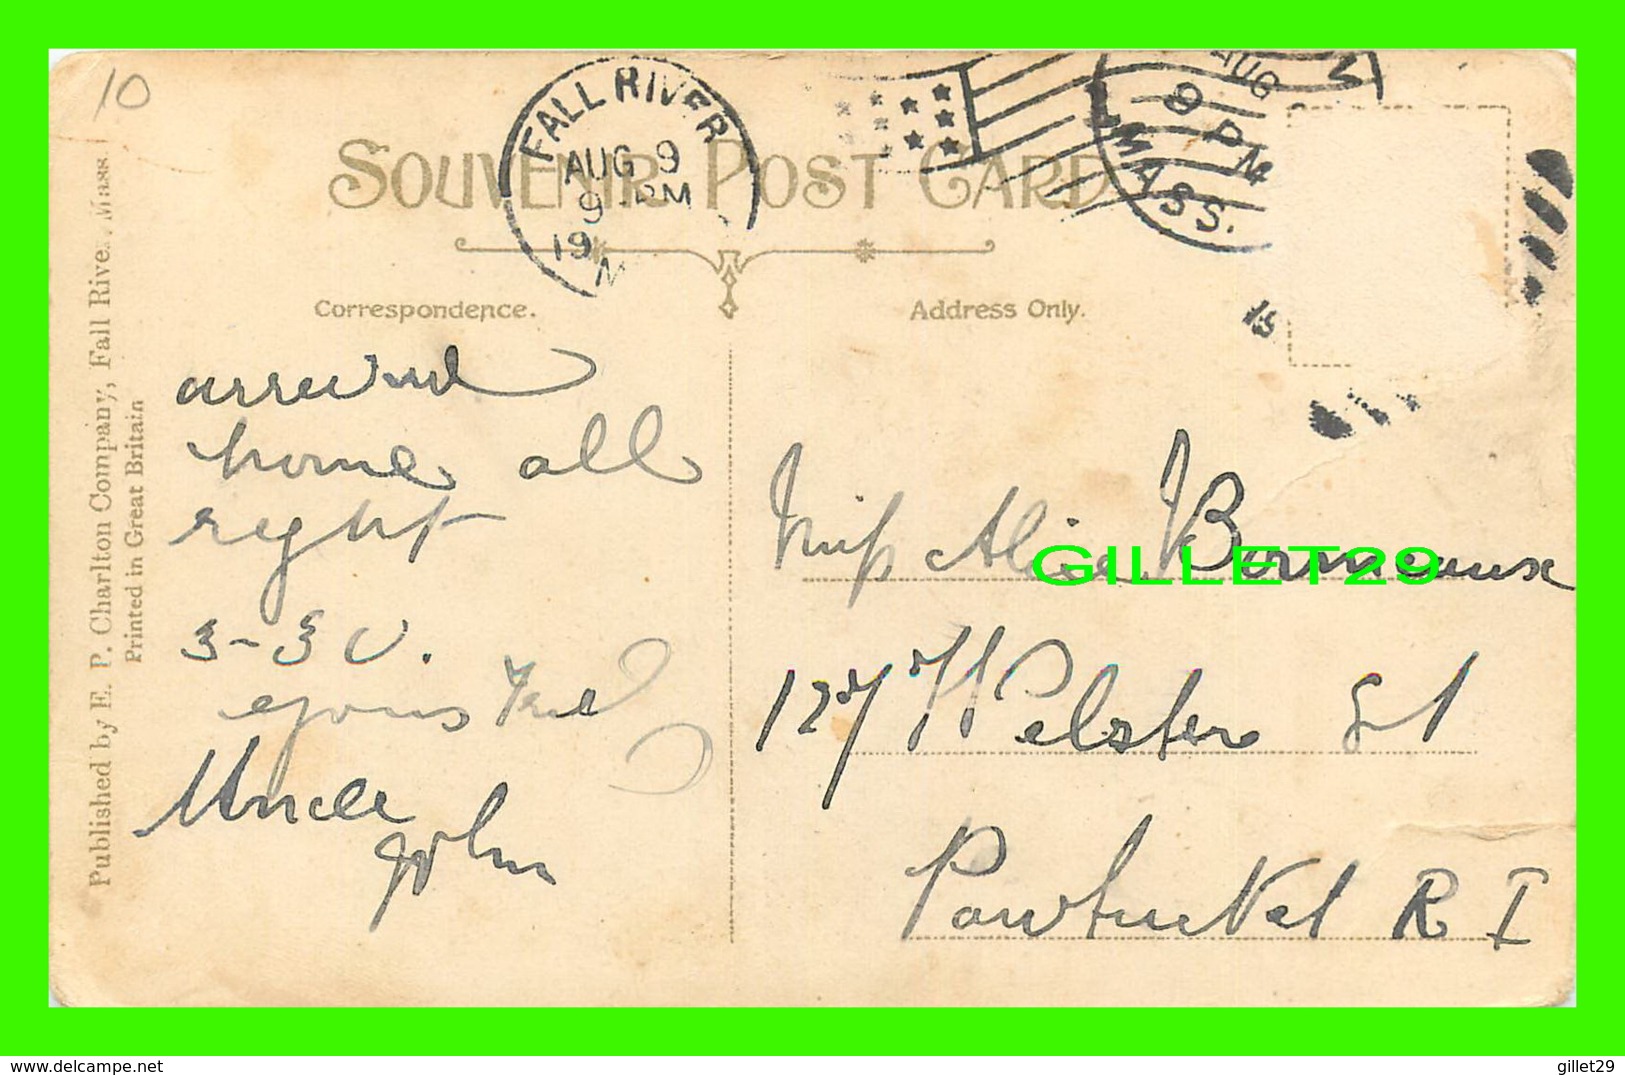 10
FALL RIVER
AUG 9
9 PM
19
M
AUG
9 PM
MASS.
SOUVENIR POST CARD
Correspondence.
Address Only.
Published by E. P. Charlton Company, Fall River, Mass.
Printed in Great Britain
arrived
home all
right
3-30.
yours
Uncle
John
Miss Alice
127 St
Pawtucket R I
GILLET29
delcampe.net
gillet29